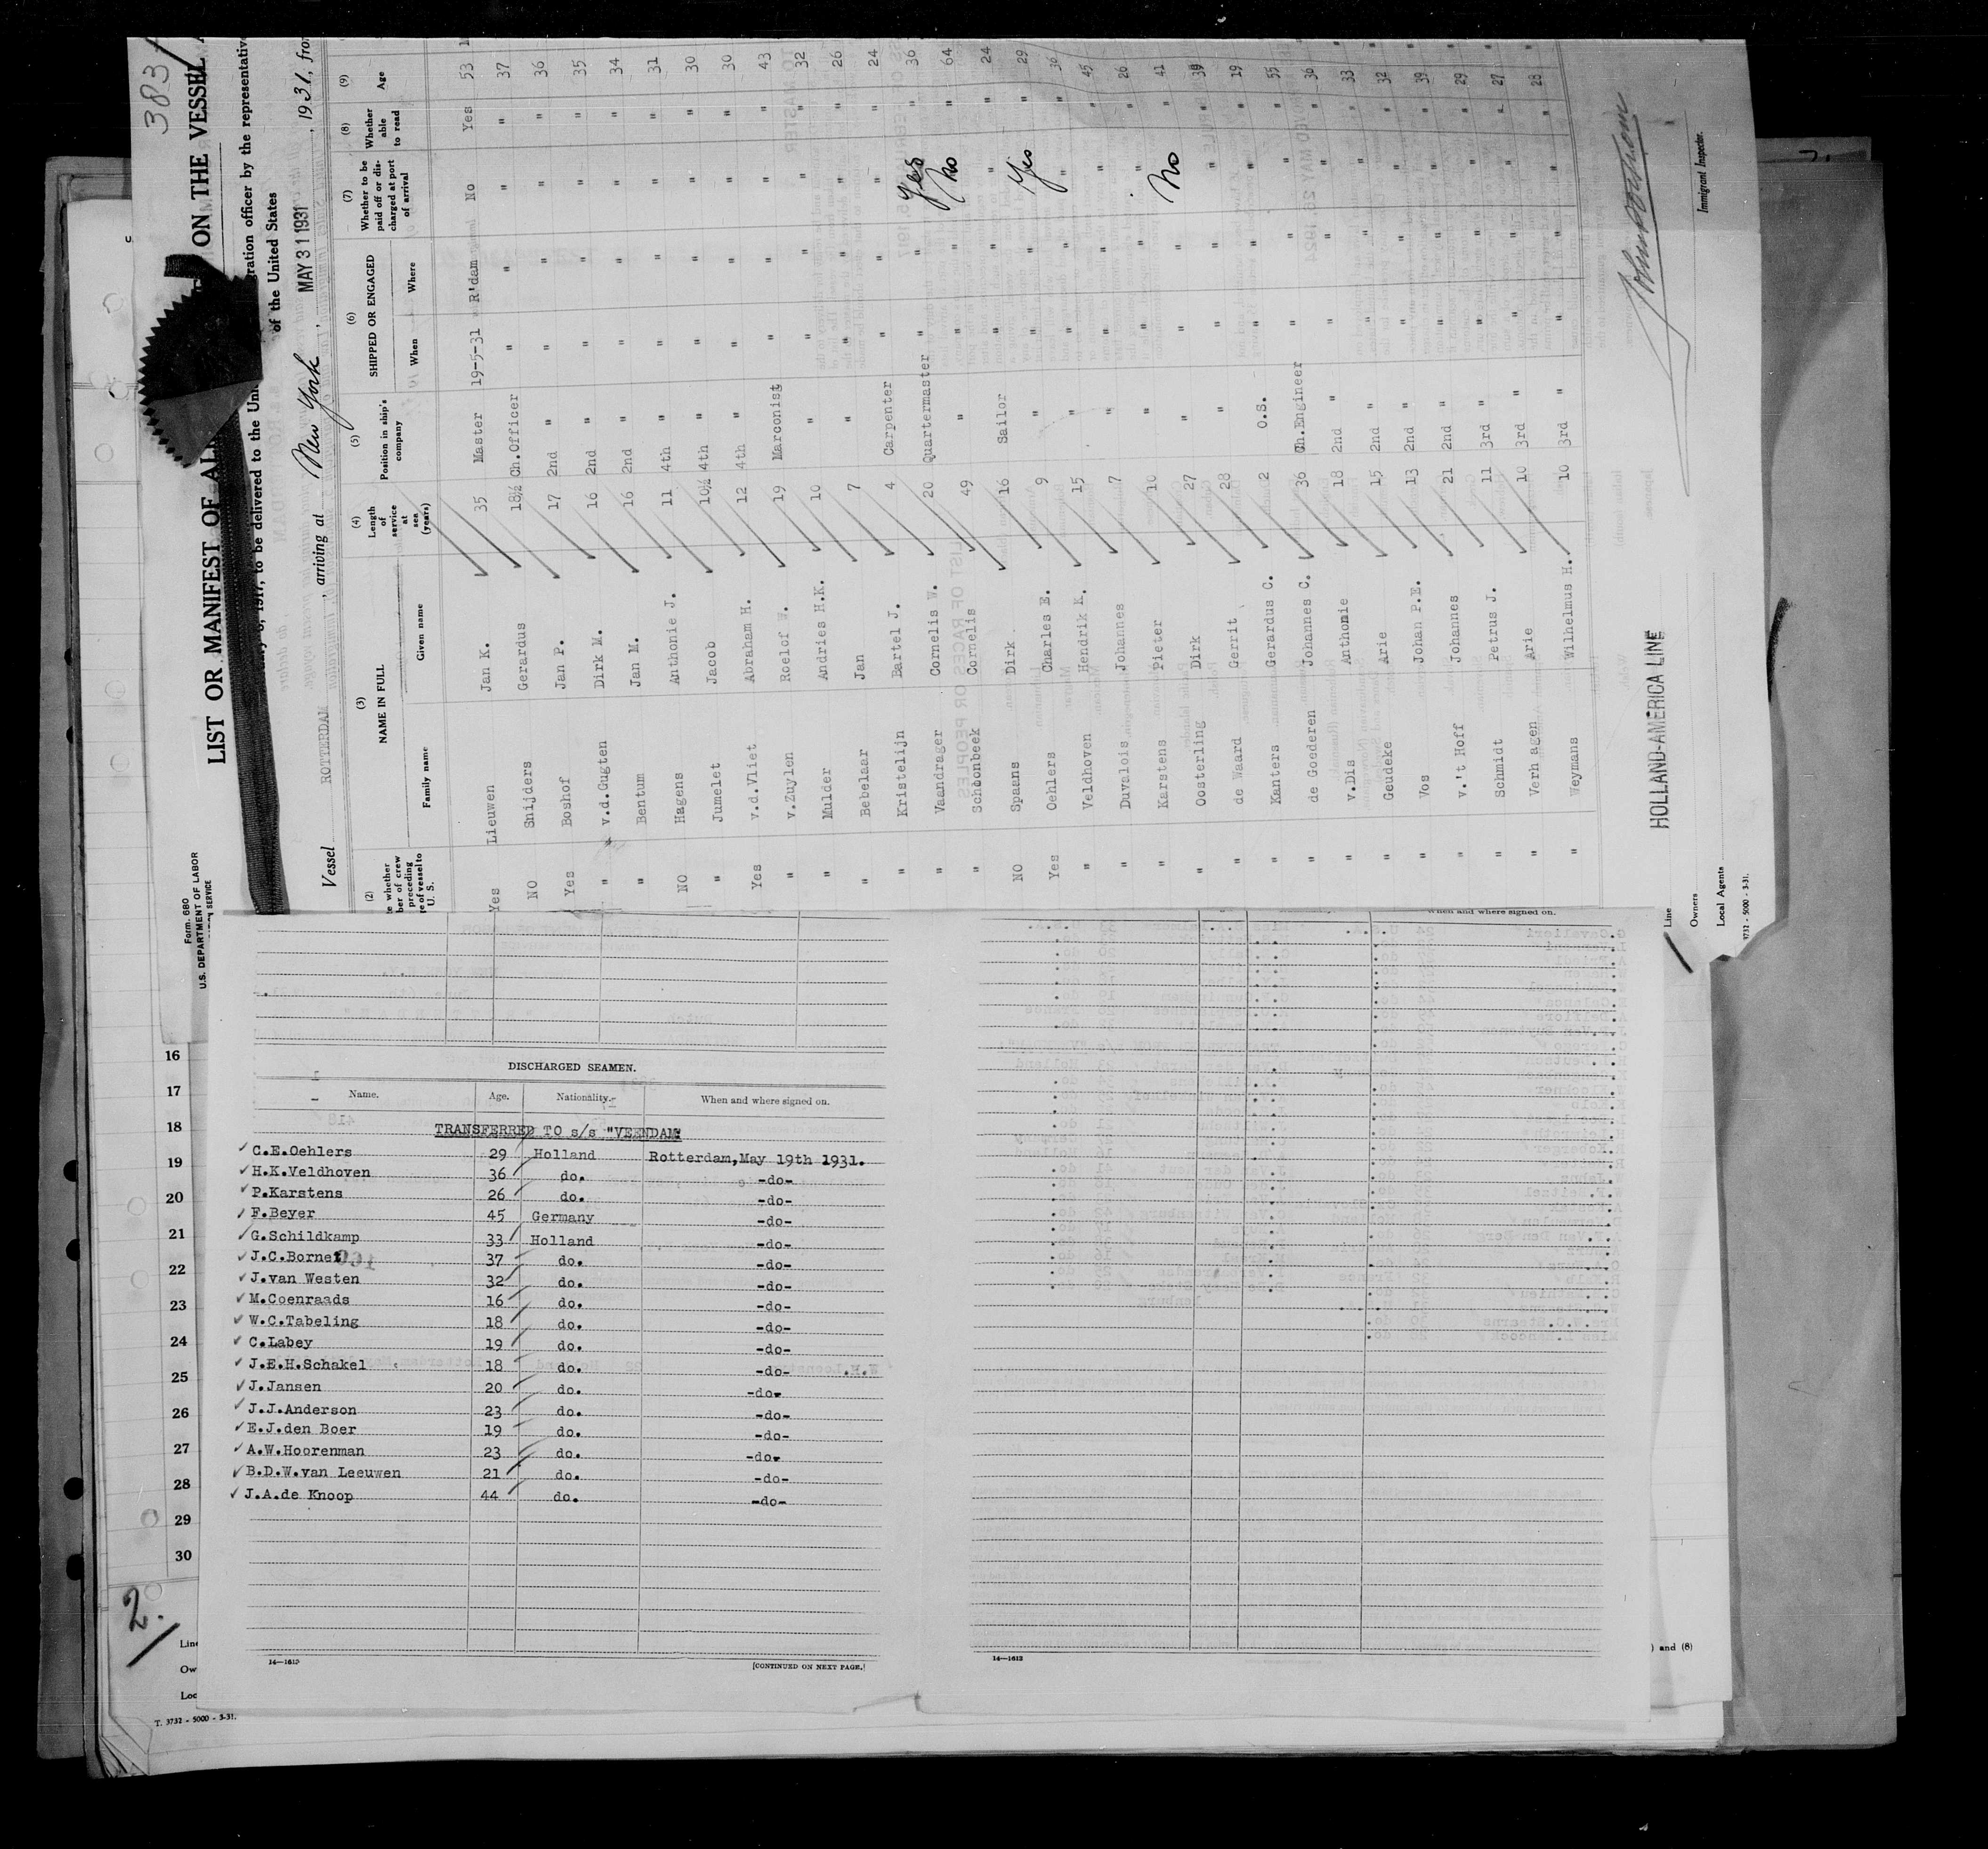 383
LIST OR MANIFEST OF AL
ON THE VESSEL
to be delivered to the Uni
gration officer by the representative
of the United States
Vessel
ROTTERDAM
, arriving at New York, MAY 31 1931, 1931, from
Form 680
U.S. DEPARTMENT OF LABOR
(2) (3) NAME IN FULL (4) (5) (6) SHIPPED OR ENGAGED (7) (8) (9)
whether
ber of crew
preceding
ge of vessel to
U. S.
Family name Given name
Length of service at sea (years)
Position in ship's company
When Where
Whether to be paid off or discharged at port of arrival
Whether able to read
Age
Yes Lieuwen Jan K. 35 Master 19-5-31 R'dam No Yes 53
NO Snijders Gerardus 18½ Ch.Officer " " " " 37
Yes Boshof Jan P. 17 2nd " " " " " 36
" v.d.Gugten Dirk M. 16 2nd " " " " " 35
" Bentum Jan M. 16 2nd " " " " " 34
NO Hagens Anthonie J. 11 4th " " " " " 31
" Jumelet Jacob 10½ 4th " " " " " 30
Yes v.d.Vliet Abraham H. 12 4th " " " " " 30
" v.Zuylen Roelof W. 19 Marconist " " " " 43
" Mulder Andries H.K. 10 " " " " " 32
" Bebelaar Jan 7 " " " " " 26
" Kristelijn Bartel J. 4 Carpenter " " " " 24
" Vaandrager Cornelis W. 20 Quartermaster " " Yes " 36
" Schoonbeek Cornelis 49 " " " No " 64
NO Spaans Dirk 16 Sailor " " " " 24
Yes Oehlers Charles E. 9 " " " Yes " 29
" Veldhoven Hendrik K. 15 " " " " " 36
" Duvalois Johannes 7 " " " " " 45
" Karstens Pieter 10 " " " " " 26
" Oosterling Dirk 27 " " " No " 41
" de Waard Gerrit 28 " " " " 39
" Kanters Gerardus C. 2 O.S. " " " " 19
" de Goederen Johannes C. 36 Ch.Engineer " " " " 55
" v.Dis Anthonie 18 2nd " " " " " 36
" Geudeke Arie 15 2nd " " " " " 33
" Vos Johan P.E. 13 2nd " " " " " 32
" v.'t Hoff Johannes 21 2nd " " " " " 39
" Schmidt Petrus J. 11 3rd " " " " " 29
" Verhagen Arie 10 3rd " " " " " 27
" Weymans Wilhelmus H. 10 3rd " " " " " 28
Line
HOLLAND-AMERICA LINE
Owners
Local Agents
Immigrant Inspector.
3732 - 5000 - 3-31.
When and where signed on.
DISCHARGED SEAMEN.
Name. Age. Nationality. When and where signed on.
TRANSFERRED TO s/s "VEENDAM"
C.E.Oehlers 29 Holland Rotterdam,May 19th 1931.
H.K.Veldhoven 36 do. -do-
P.Karstens 26 do. -do-
F.Beyer 45 Germany -do-
G.Schildkamp 33 Holland -do-
J.C.Bornet 37 do. -do-
J.van Westen 32 do. -do-
M.Coenraads 16 do. -do-
W.C.Tabeling 18 do. -do-
C.Labey 19 do. -do-
J.E.H.Schakel 18 do. -do-
J.Jansen 20 do. -do-
J.J.Anderson 23 do. -do-
E.J.den Boer 19 do. -do-
A.W.Hoorenman 23 do. -do-
B.D.W.van Leeuwen 21 do. -do-
J.A.de Knoop 44 do. -do-
14—1613
[CONTINUED ON NEXT PAGE.]
14—1613
16
17
18
19
20
21
22
23
24
25
26
27
28
29
30
2.
Line
Ow
Loc
T. 3732 - 5000 - 3-31.
) and (8)